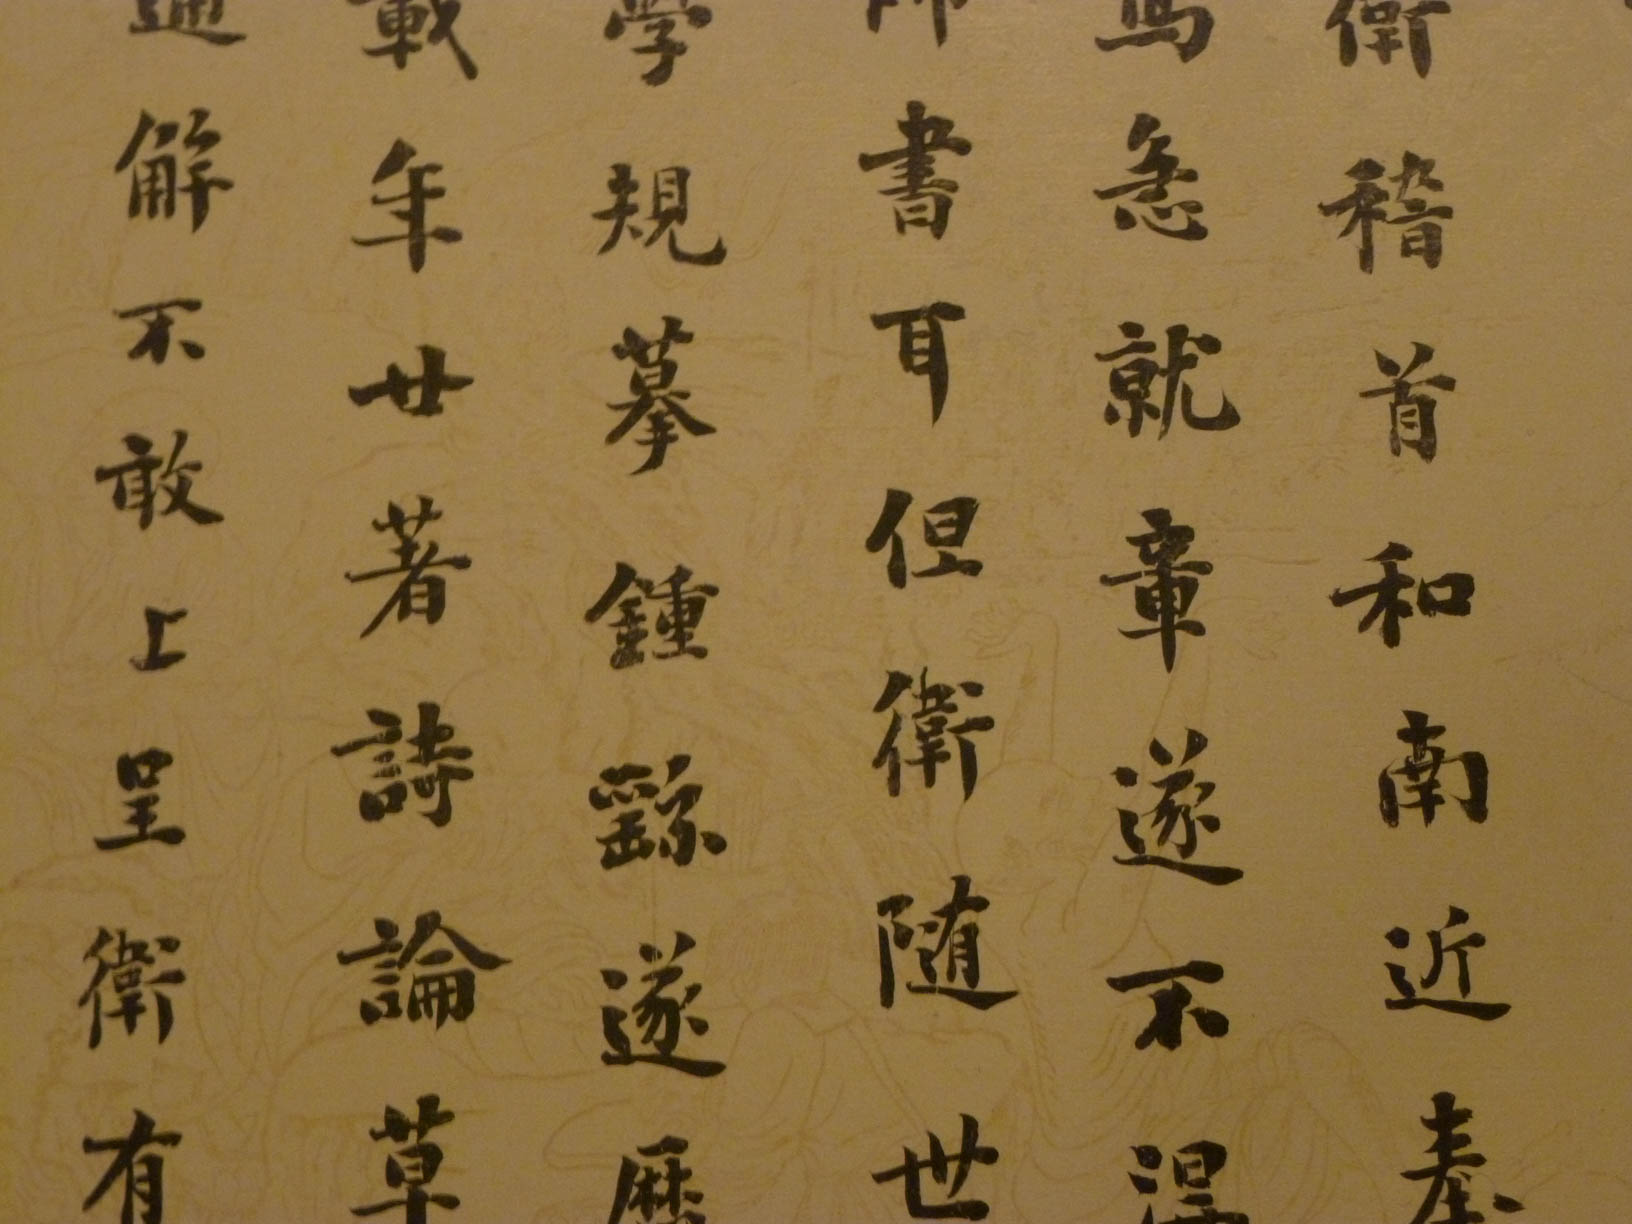 衛稽首和南近奉
寫急就章遂不得
師書耳但衛随世
學規摹鍾繇遂歷
載年廿著詩論草
通解不敢上呈衛有